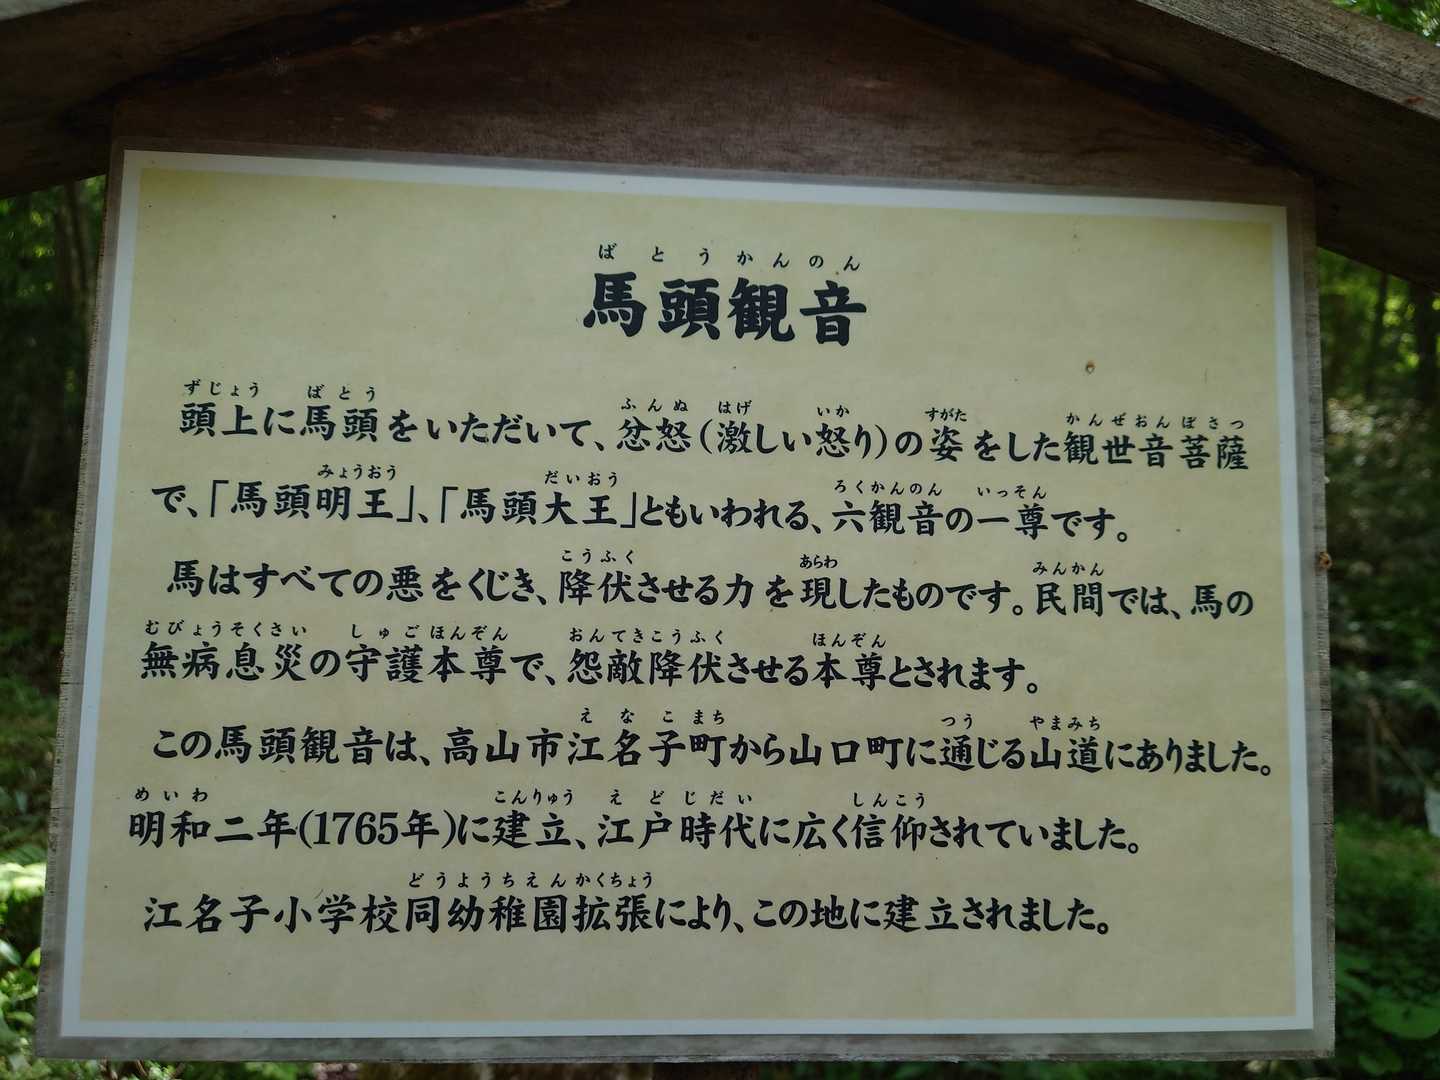 ばとうかんのん
馬頭観音
ずじょう ばとう ふんぬ はげ いか すがた かんぜおんぼさつ
頭上に馬頭をいただいて、忿怒(激しい怒り)の姿をした観世音菩薩
みょうおう だいおう ろくかんのん いっそん
で、「馬頭明王」、「馬頭大王」ともいわれる、六観音の一尊です。
こうふく あらわ みんかん
馬はすべての悪をくじき、降伏させる力を現したものです。民間では、馬の
むびょうそくさい しゅごほんぞん おんてきこうふく ほんぞん
無病息災の守護本尊で、怨敵降伏させる本尊とされます。
えなこまち つう やまみち
この馬頭観音は、高山市江名子町から山口町に通じる山道にありました。
めいわ こんりゅう えどじだい しんこう
明和二年(1765年)に建立、江戸時代に広く信仰されていました。
どうようちえんかくちょう
江名子小学校同幼稚園拡張により、この地に建立されました。